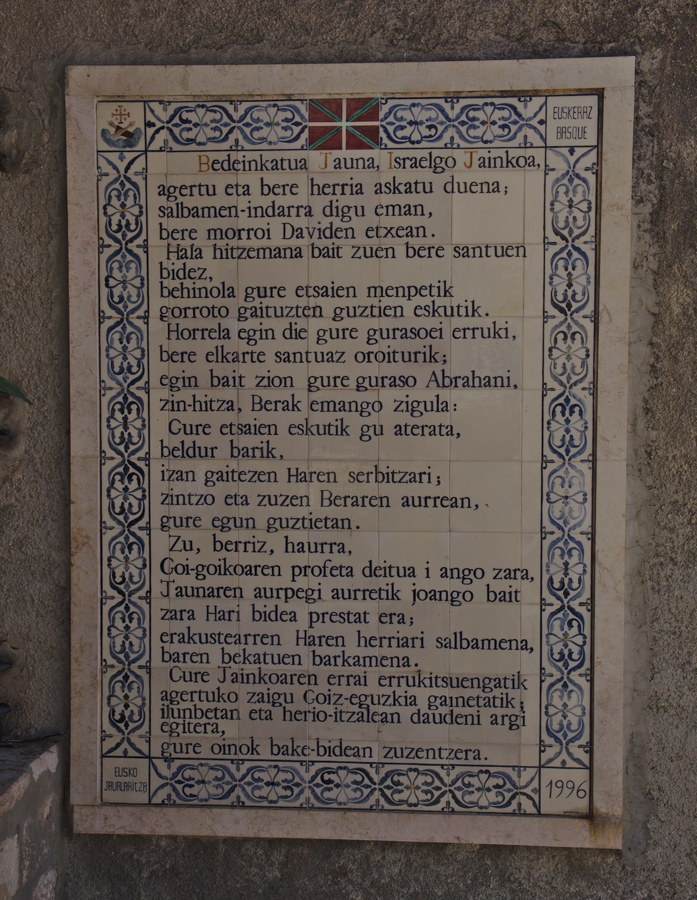 EUSKERAZ
BASQUE
Bedeinkatua Jauna, Israelgo Jainkoa,
agertu eta bere herria askatu duena;
salbamen-indarra digu eman,
bere morroi Daviden etxean.
Hala hitzemana bait zuen bere santuen
bidez,
behinola gure etsaien menpetik
gorroto gaituzten guztien eskutik.
Horrela egin die gure gurasoei erruki,
bere elkarte santuaz oroiturik;
egin bait zion gure guraso Abrahani,
zin-hitza, Berak emango zigula:
Gure etsaien eskutik gu aterata,
beldur barik,
izan gaitezen Haren serbitzari;
zintzo eta zuzen Beraren aurrean,
gure egun guztietan.
Zu, berriz, haurra,
Goi-goikoaren profeta deitua i ango zara,
Jaunaren aurpegi aurretik joango bait
zara Hari bidea prestat era;
erakustearren Haren herriari salbamena,
baren bekatuen barkamena.
Gure Jainkoaren errai errukitsuengatik
agertuko zaigu Goiz-eguzkia gainetatik;
ilunbetan eta herio-itzalean daudeni argi
egitera,
gure oinok bake-bidean zuzentzera.
EUSKO
JAURLARITZA
1996